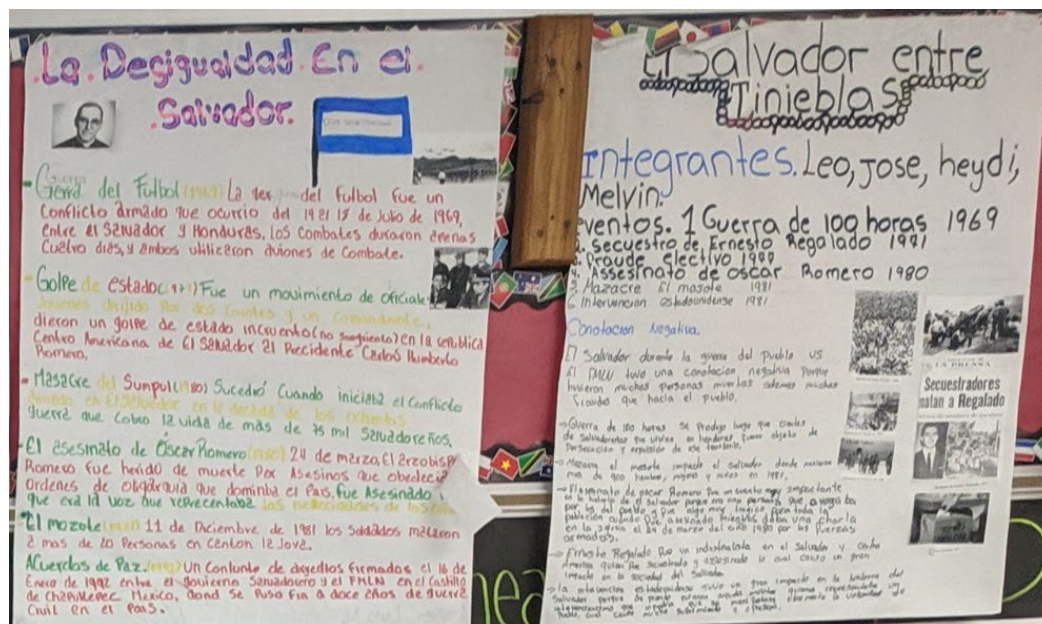 .La Desigualdad En el
.Salvador.
- Gerra del Futbol (1969) La del Futbol fue un
Conflicto armado que ocurrio del 14 al 18 de Julio de 1969,
Entre el Salvador y Honduras, los Combates duraron apenas
Cuatro dias, y ambos utilizaron aviones de Combate.
- Golpe de estado (1979) Fue un movimiento de oficiales
Jovenes dirijido por dos y un Comandante,
dieron un golpe de estado incruento (no sangriento) en la republica
Centro Americana de El Salvador al Precidente Carlos Humberto
Romero,
- Masacre del Sumpul (1980) Sucedió Cuando iniciaba el Conflicto
Armado en El Salvador en la decada de los ochentas
guerra que Cobro la vida de más de 75 mil Salvadoreños.
- El asesinato de Óscar Romero (1980) 24 de marzo, El arzobispo
Romero fue herido de muerte por Asesinos que obedecia
Ordenes de oligarquia que dominba el Pais, fue Asesinado
que era la voz que reprecentaba las
El mozote (1981) 11 de Diciembre de 1981 los Soldados
a mas de 20 Personas en Canton la Joya.
ACuerdos de Paz. (1992) Un Conjunto de firmados el 16 de
Enero de 1992 entre el gouierno Salvadoreño y el FMLN en el Castillo
de Chapultepec Mexico, dond Se Puso Fin a doce años de guerra
Civil en el Pais.
El Salvador entre
Tinieblas
Integrantes. Leo, Jose, heydi,
Melvin.
eventos. 1 Guerra de 100 horas 1969
2. Secuestro de Ernesto Regalado 1971
3. Fraude electivo
4. Assesinato de oscar Romero 1980
5. Mazacre El masote 1981
6. Intervencion estadounidense 1981
Conotacion Negativa.
El Salvador durante la guerra del Pueblo VS
El FMLN tuvo una conotacion negativa Porque
hubieron muchas personas muertas ademas muchos
fraudes que hacia el pueblo.
LA PRENSA
Secuestradores
matan a Regalado
→ Guerra de 100 horas se produjo luego que cientos
de Salvadoreños que vivian en honduras fueron objeto de
Persecucion y expulsion de ese territorio.
→ Mazacre el masote impacto el Salvador donde murieron
mas de 900 hombres, mujeres y niños en 1981.
→ El asesinato de oscar Romero fue un evento muy impactante
en la historia de el Salvador porque era una persona que avogaba
por los del pueblo y fue algo muy tragico para toda la
poblacion cuando fue asesinado mientras daba una charla
en la iglesia el 24 de marzo del año 1980 por las fuerzas
armadas.
→ Ernesto Regalado fue un industrialista en el Salvador y Centro
America quien fue secuestrado y assesinado lo cual causo un gran
impacto en la sociedad del Salvador.
→ la intervencion estadounidense tuvo un gran impacto en la historia del
Salvador porque